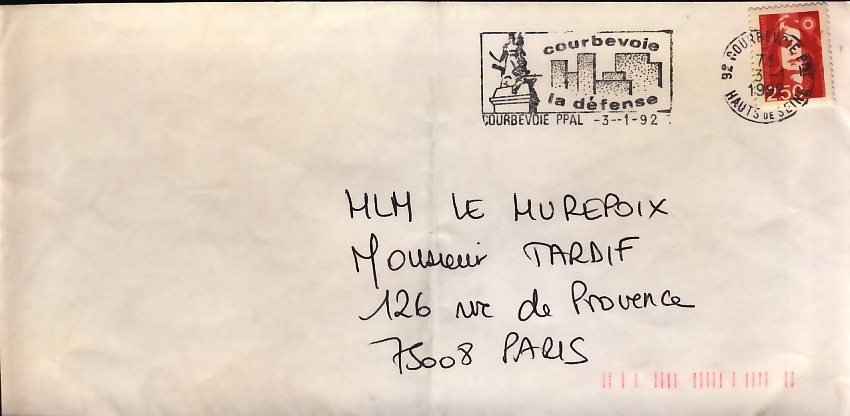 courbevoie
la défense
COURBEVOIE PPAL -3--1-92
92 COURBEVOIE PPAL
3-1
1992
HAUTS DE SEINE
2,50
MLM LE MUREPOIX
Monsieur TARDIF
126 rue de Provence
75008 PARIS